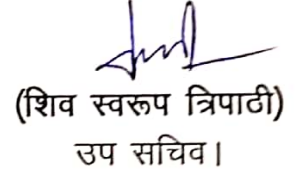 (शिव स्वरूप त्रिपाठी)
उप सचिव।